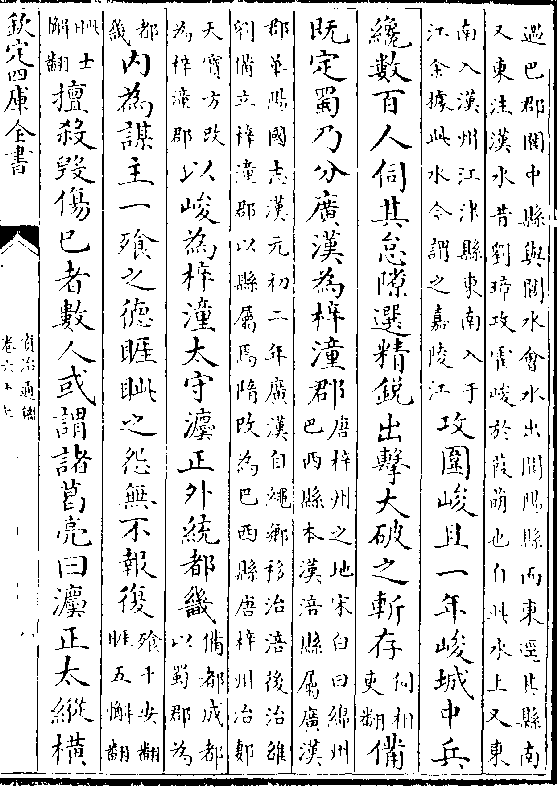 過巴郡閬中縣與閬水會水出閬陽縣而東逕其縣南
又東注漢水昔劉璋攻霍峻於葭萌也自此水上又東
南入漢州江津縣東南入于
江余據此水今謂之嘉陵江
攻圍峻且一年峻城中兵
纔數百人伺其怠隙選精鋭出擊大破之斬存
伺相
吏翻
備
既定蜀乃分廣漢為梓潼郡
唐梓州之地宋白曰綿州
巴西縣本漢涪縣屬廣漢
郡華陽國志漢元初二年廣漢自繩鄉移治涪後治雒
劉備立梓潼郡以縣屬焉隋改為巴西縣唐梓州治郪
天寶方改
為梓潼郡
以峻為梓潼太守灋正外統都畿
備都成都
以蜀郡為
都
畿
内為謀主一飱之德睚眦之怨無不報復
飱千安翻
睚五懈翻
眦士
懈翻
擅殺毁傷已者數人或謂諸葛亮曰灋正太縱横
欽定四庫全書
資治通鑑
卷六十七